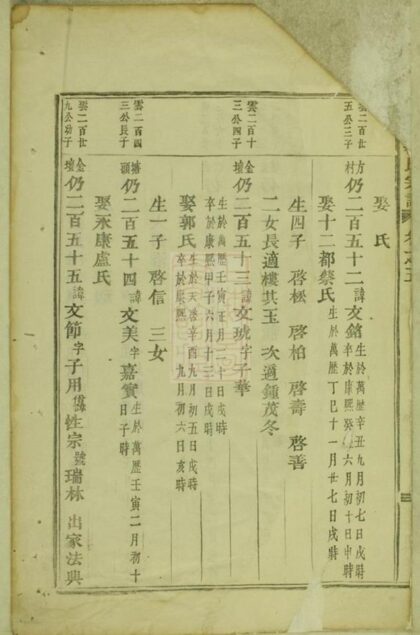 娶 氏
雲二百廿五公三子
方村 仍二百五十二 諱文銘 生於萬歷辛丑九月初七日戌時 卒於康熙癸 六月初十日申時
娶十二都蔡氏 生於萬歷丁巳十一月廿七日戌時
生四子 啓松 啓柏 啓壽 啓善
二女長適樓其玉 次適鍾茂冬
雲二百十三公四子
金壇 仍二百五十三 諱文琥 字子華 生於萬歷壬寅正月二十日戌時 卒於康熙甲子六月十三日戌時
娶郭氏 生於天啓辛酉九月初五日戌時 卒於康熙 九月初六日亥時
生一子 啓信 三女
雲二百四三公長子
塘頭 仍二百五十四 諱文美 字嘉實 生於萬歷壬寅二月初十日子時
娶永康盧氏
雲二百廿九公功子
金壇 仍二百五十五 諱文節 字子用 性宗 號瑞林 出家法興